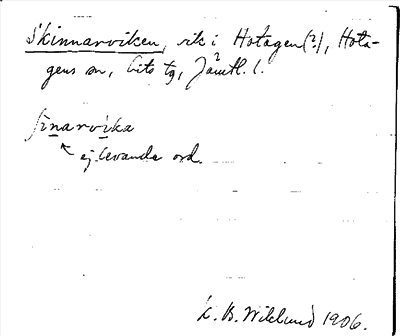 Skinnarviken, vik i Hotagen(?), Hota-
gens sn, Lits tg, Jämtl. l.
ʃinarvika
ej levande ord.
K. B. Wiklund 1906.